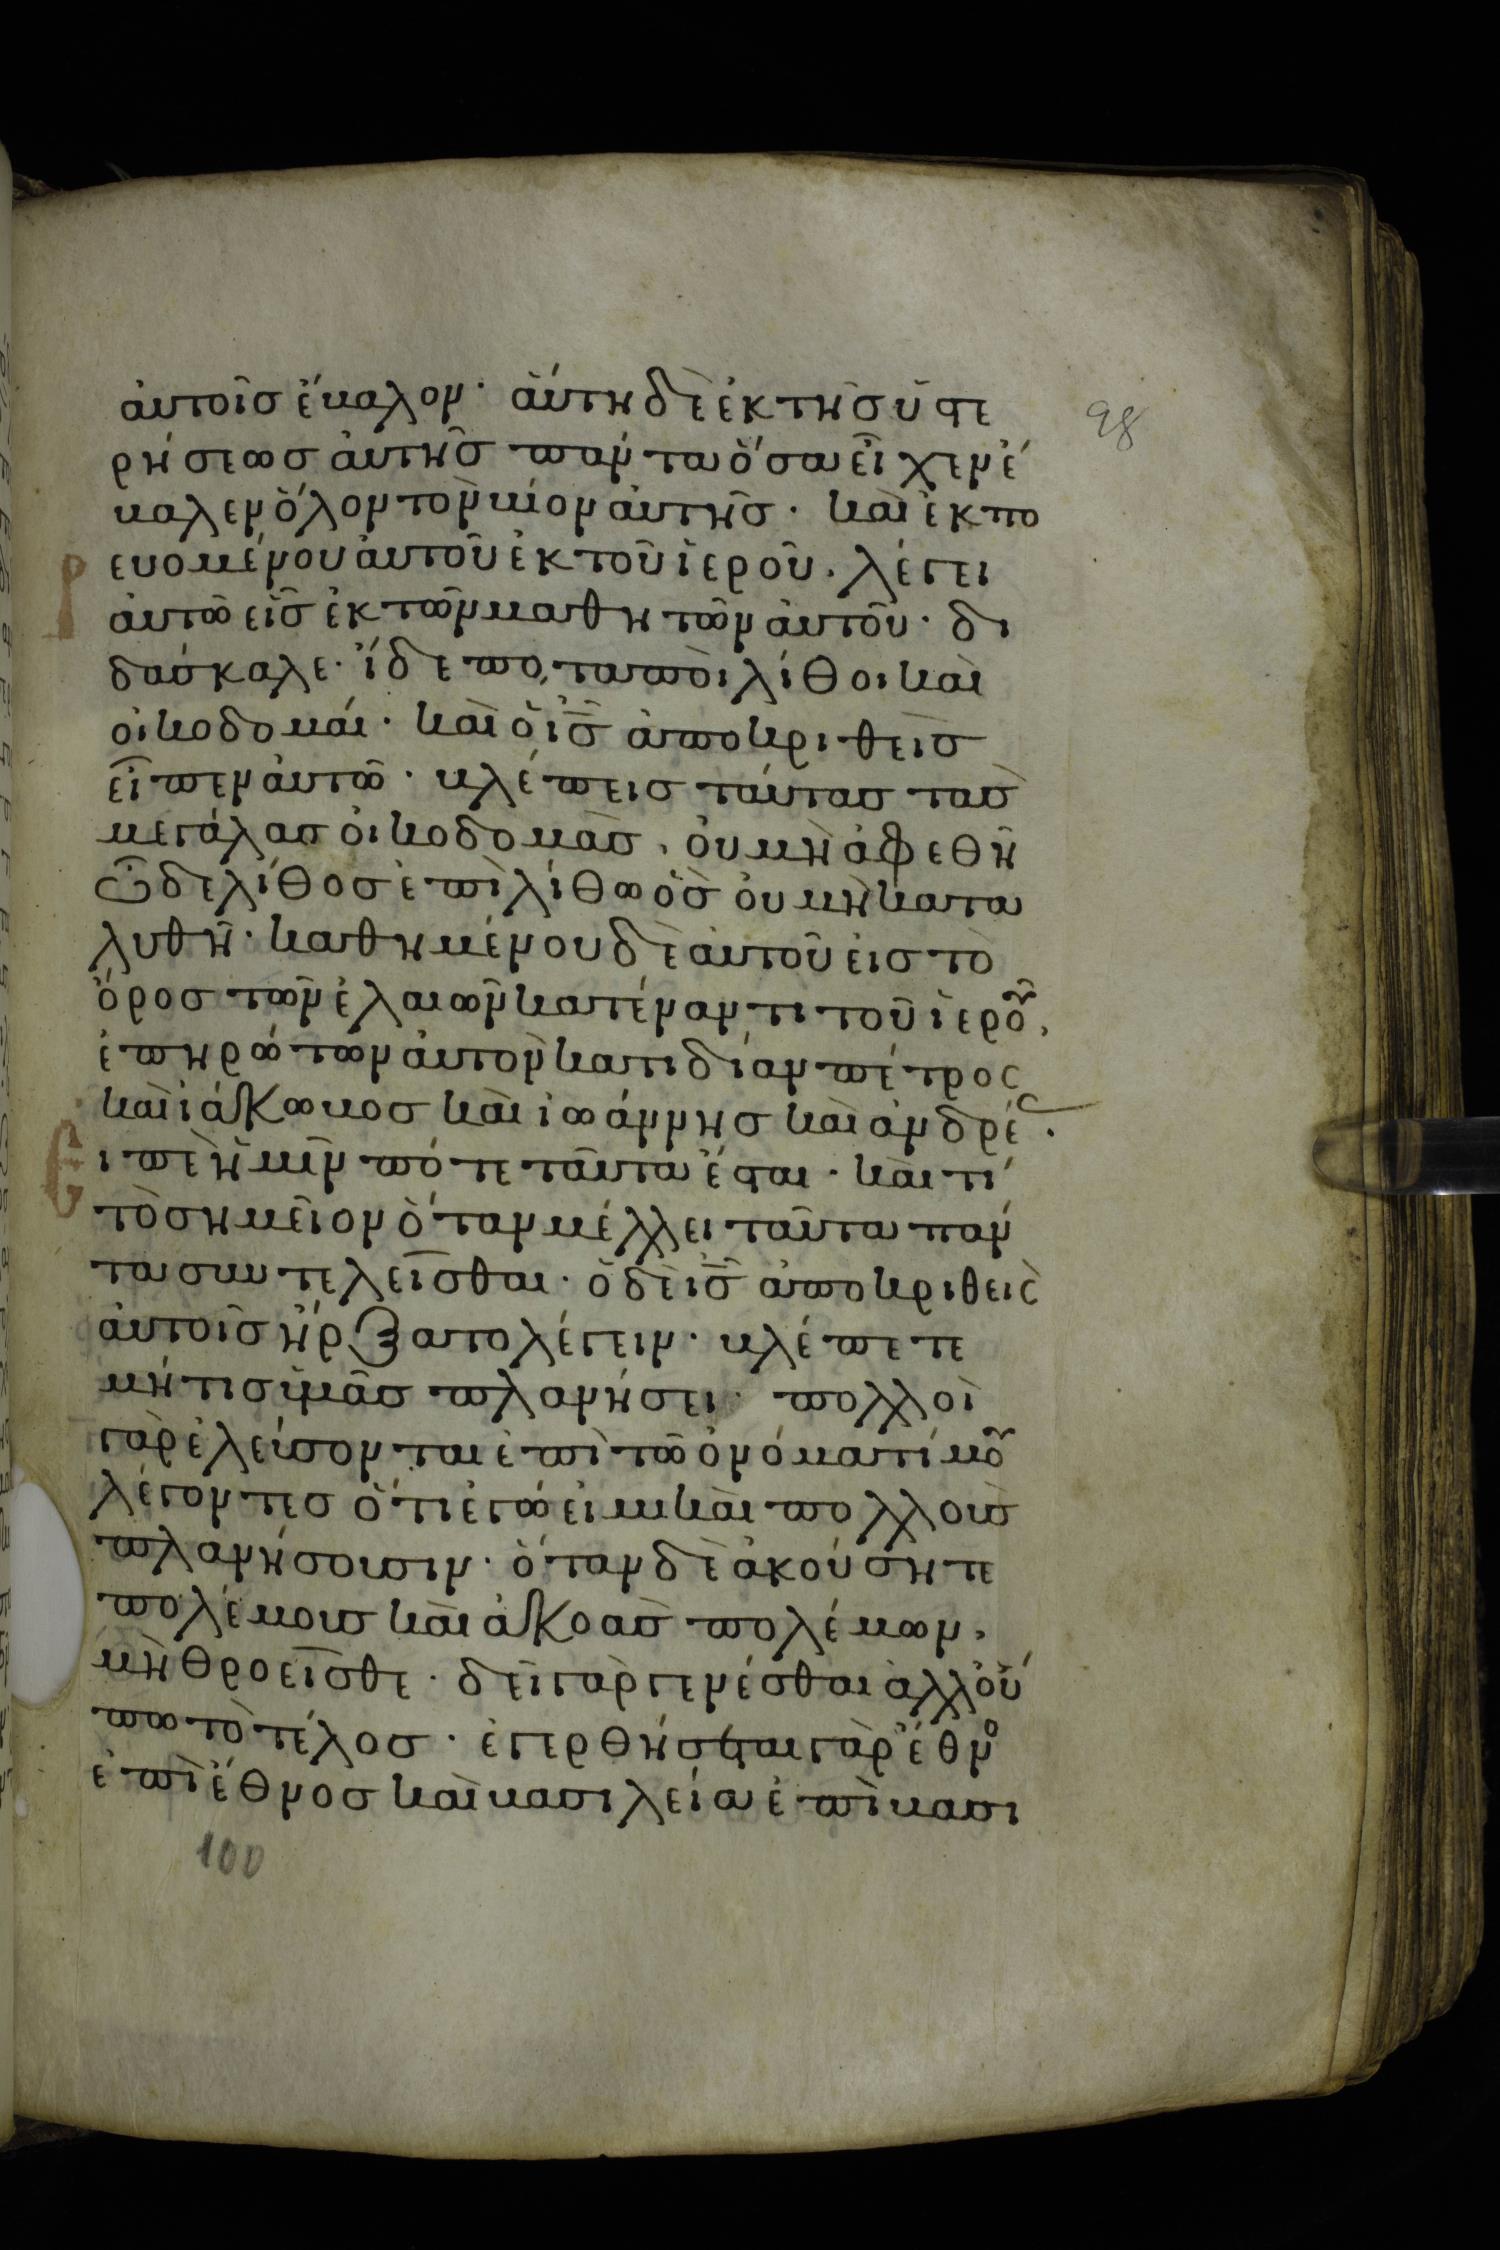 αὐτοῖς ἔβαλον· αὕτη δὲ ἐκ τῆς ὑστε
ρήσεως αὐτῆς πάντα ὅσα εἶχεν ἔ
βαλεν ὅλον τὸν βίον αὐτῆς· καὶ ἐκπο
ευομένου αὐτοῦ ἐκ τοῦ ἱεροῦ. λέγει
αὐτῶ εἷς ἐκ τῶν μαθητῶν αὐτοῦ· δι
δάσκαλε· ἴδε ποταποὶ λίθοι καὶ
οἰκοδομάι· καὶ ὁ ις ἀποκριθεὶς
εἶπεν αὐτῶ· βλέπεις ταύτας τὰς
μεγάλας οἰκοδομὰς, οὐ μὴ ἀφεθῆ
ὧδε λίθος ἐπὶ λίθω ὃς οὐ μὴ κατα
λυθῆ· καθημένου δὲ αὐτοῦ εἰς τὸ
ὄρος τῶν ἐλαιῶν κατέναντι τοῦ ἱεροῦ,
ἐπηρώτων αὐτὸν κατιδίαν πέτρος
καὶ ἰάκωβος καὶ ἰωάννης καὶ ἀνδρέ·
ιπὲ ἡμῖν πότε ταῦτα ἔσται· καὶ τί
τὸ σημεῖον ὅταν μέλλει ταῦτα πάν
τα συντελεῖσθαι· ὁ δὲ ις ἀποκριθεὶς
αὐτοῖς ἤρξατο λέγειν· βλέπετε
μήτις ὑμᾶς πλανήσει· πολλοὶ
γὰρ ἐλεύσονται ἐπὶ τῶ ὀνόματί μου
λέγοντες ὅτι ἐγώ εἰμι καὶ πολλοὺς
πλανήσουσιν· ὅταν δὲ ἀκούσητε
πολέμους καὶ ἀκοὰς πολέμων,
μὴ θροεῖσθε· δεῖ γὰρ γενέσθαι ἀλλ οὔ
πω τὸ τέλος· ἐγερθήσεται γὰρ ἔθνο
ἐπὶ ἔθνος καὶ βασιλεία ἐπὶ βασι
98
100